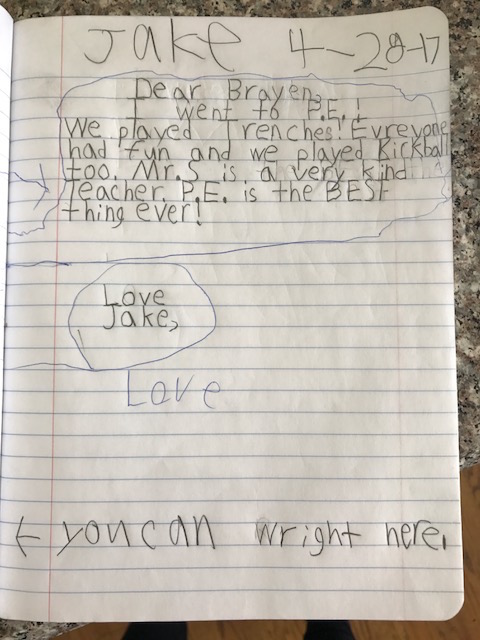 Jake 4-28-17
Dear Brayen,
I went to P.E.!
We played Trenches! Evreyone
had fun and we played Kickball
too. Mr.S is a very kind
Teacher. P.E. is the BEST
thing ever!
Love
Jake,
Love
← you can wright here.